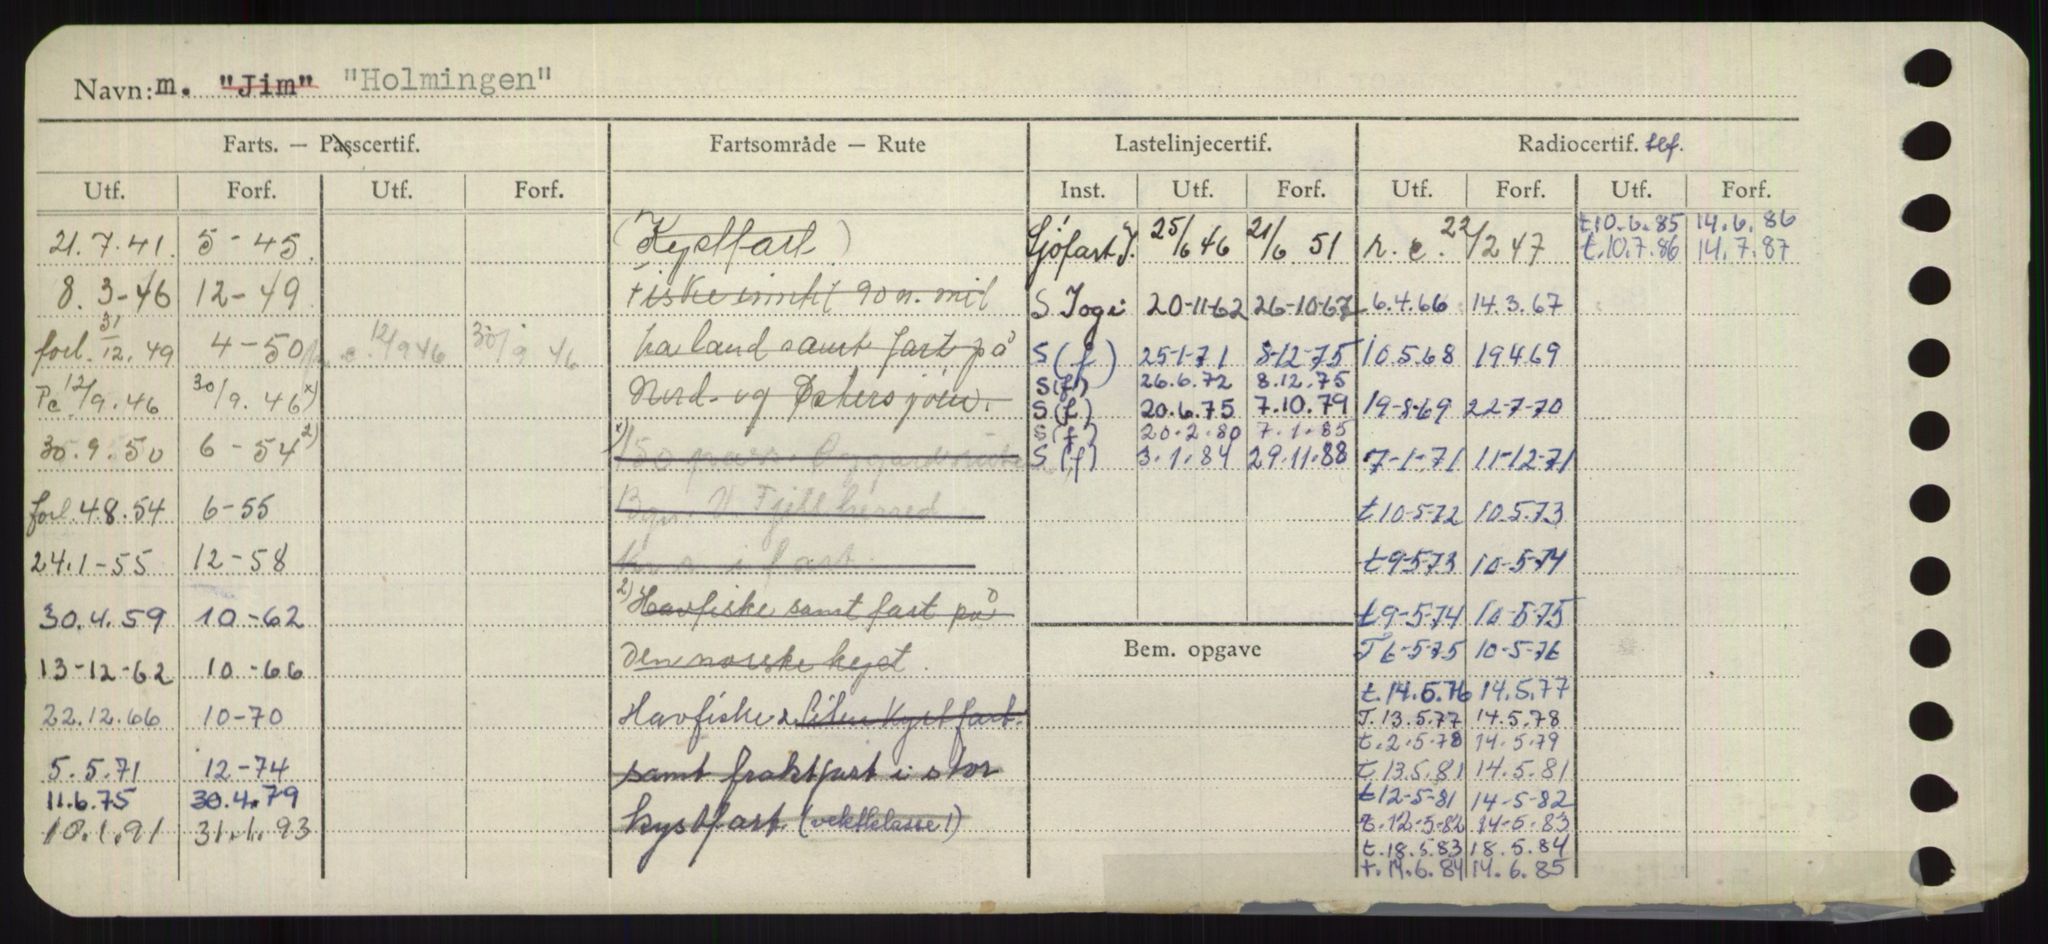 Navn: m. "Jim" "Holmingen"
Farts. — Passcertif. Fartsområde — Rute Lastelinjecertif. Radiocertif. tlf.
Utf. Forf. Utf. Forf. Inst. Utf. Forf. Utf. Forf. Utf. Forf.
t.10.6.85 14.6.86
21.7.41. 5-45. (Kystfart) Sjøfart 25/6 46 21/6 51 r.c. 22/2 47 t.10.7.86 14.7.87
8.3-46 12-49 Fiske inntil 90 n. mil S 20-11-62 26-10-67 6.4.66 14.3.67
forl. 31/12.49 4-50 12/9 46 30/9.46 fra land samt fart på S(f) 25-1-71 8-12-75 10.5.68 19.4.69
S(f) 26.6.72 8.12.75
Pc 12/9.46 30/9.46 x) Nord- og Østersjøen. S(f) 20.6.75 7.10.79 19-8-69 22-7-70
S(f) 20.2.80 7.1.85
30.9.50 6-54 2) x) 150 pass. S(f) 3.1.84 29.11.88 7-1-71 11-12-71
forl. 4.8.54 6-55 Fjell herred t10-5-72 10.5.73
24.1-55 12-58 i fart. t9-5-73 10-5-74
30.4.59 10-62 2) Havfiske samt fart på t9-5-74 10-5-75
Bem. opgave
13-12-62 10-66 den norske kyst. T6-5-75 10-5-76
t.14.5.76 14.5.77
22.12.66 10-70 Havfiske & liten kystfart. T.13.5.77 14.5.78
t.2.5.78 14.5.79
5.5.71 12-74 samt fraktfart i stor t.13.5.81 14.5.81
11.6.75 30.4.79 t12-5-81 14-5-82
10.1.91 31.1.93 kystfart. (vektklasse 1) t.12-5-82 14-5.83
t.18.5.83 18.5.84
t.14.6.84 14.6.85